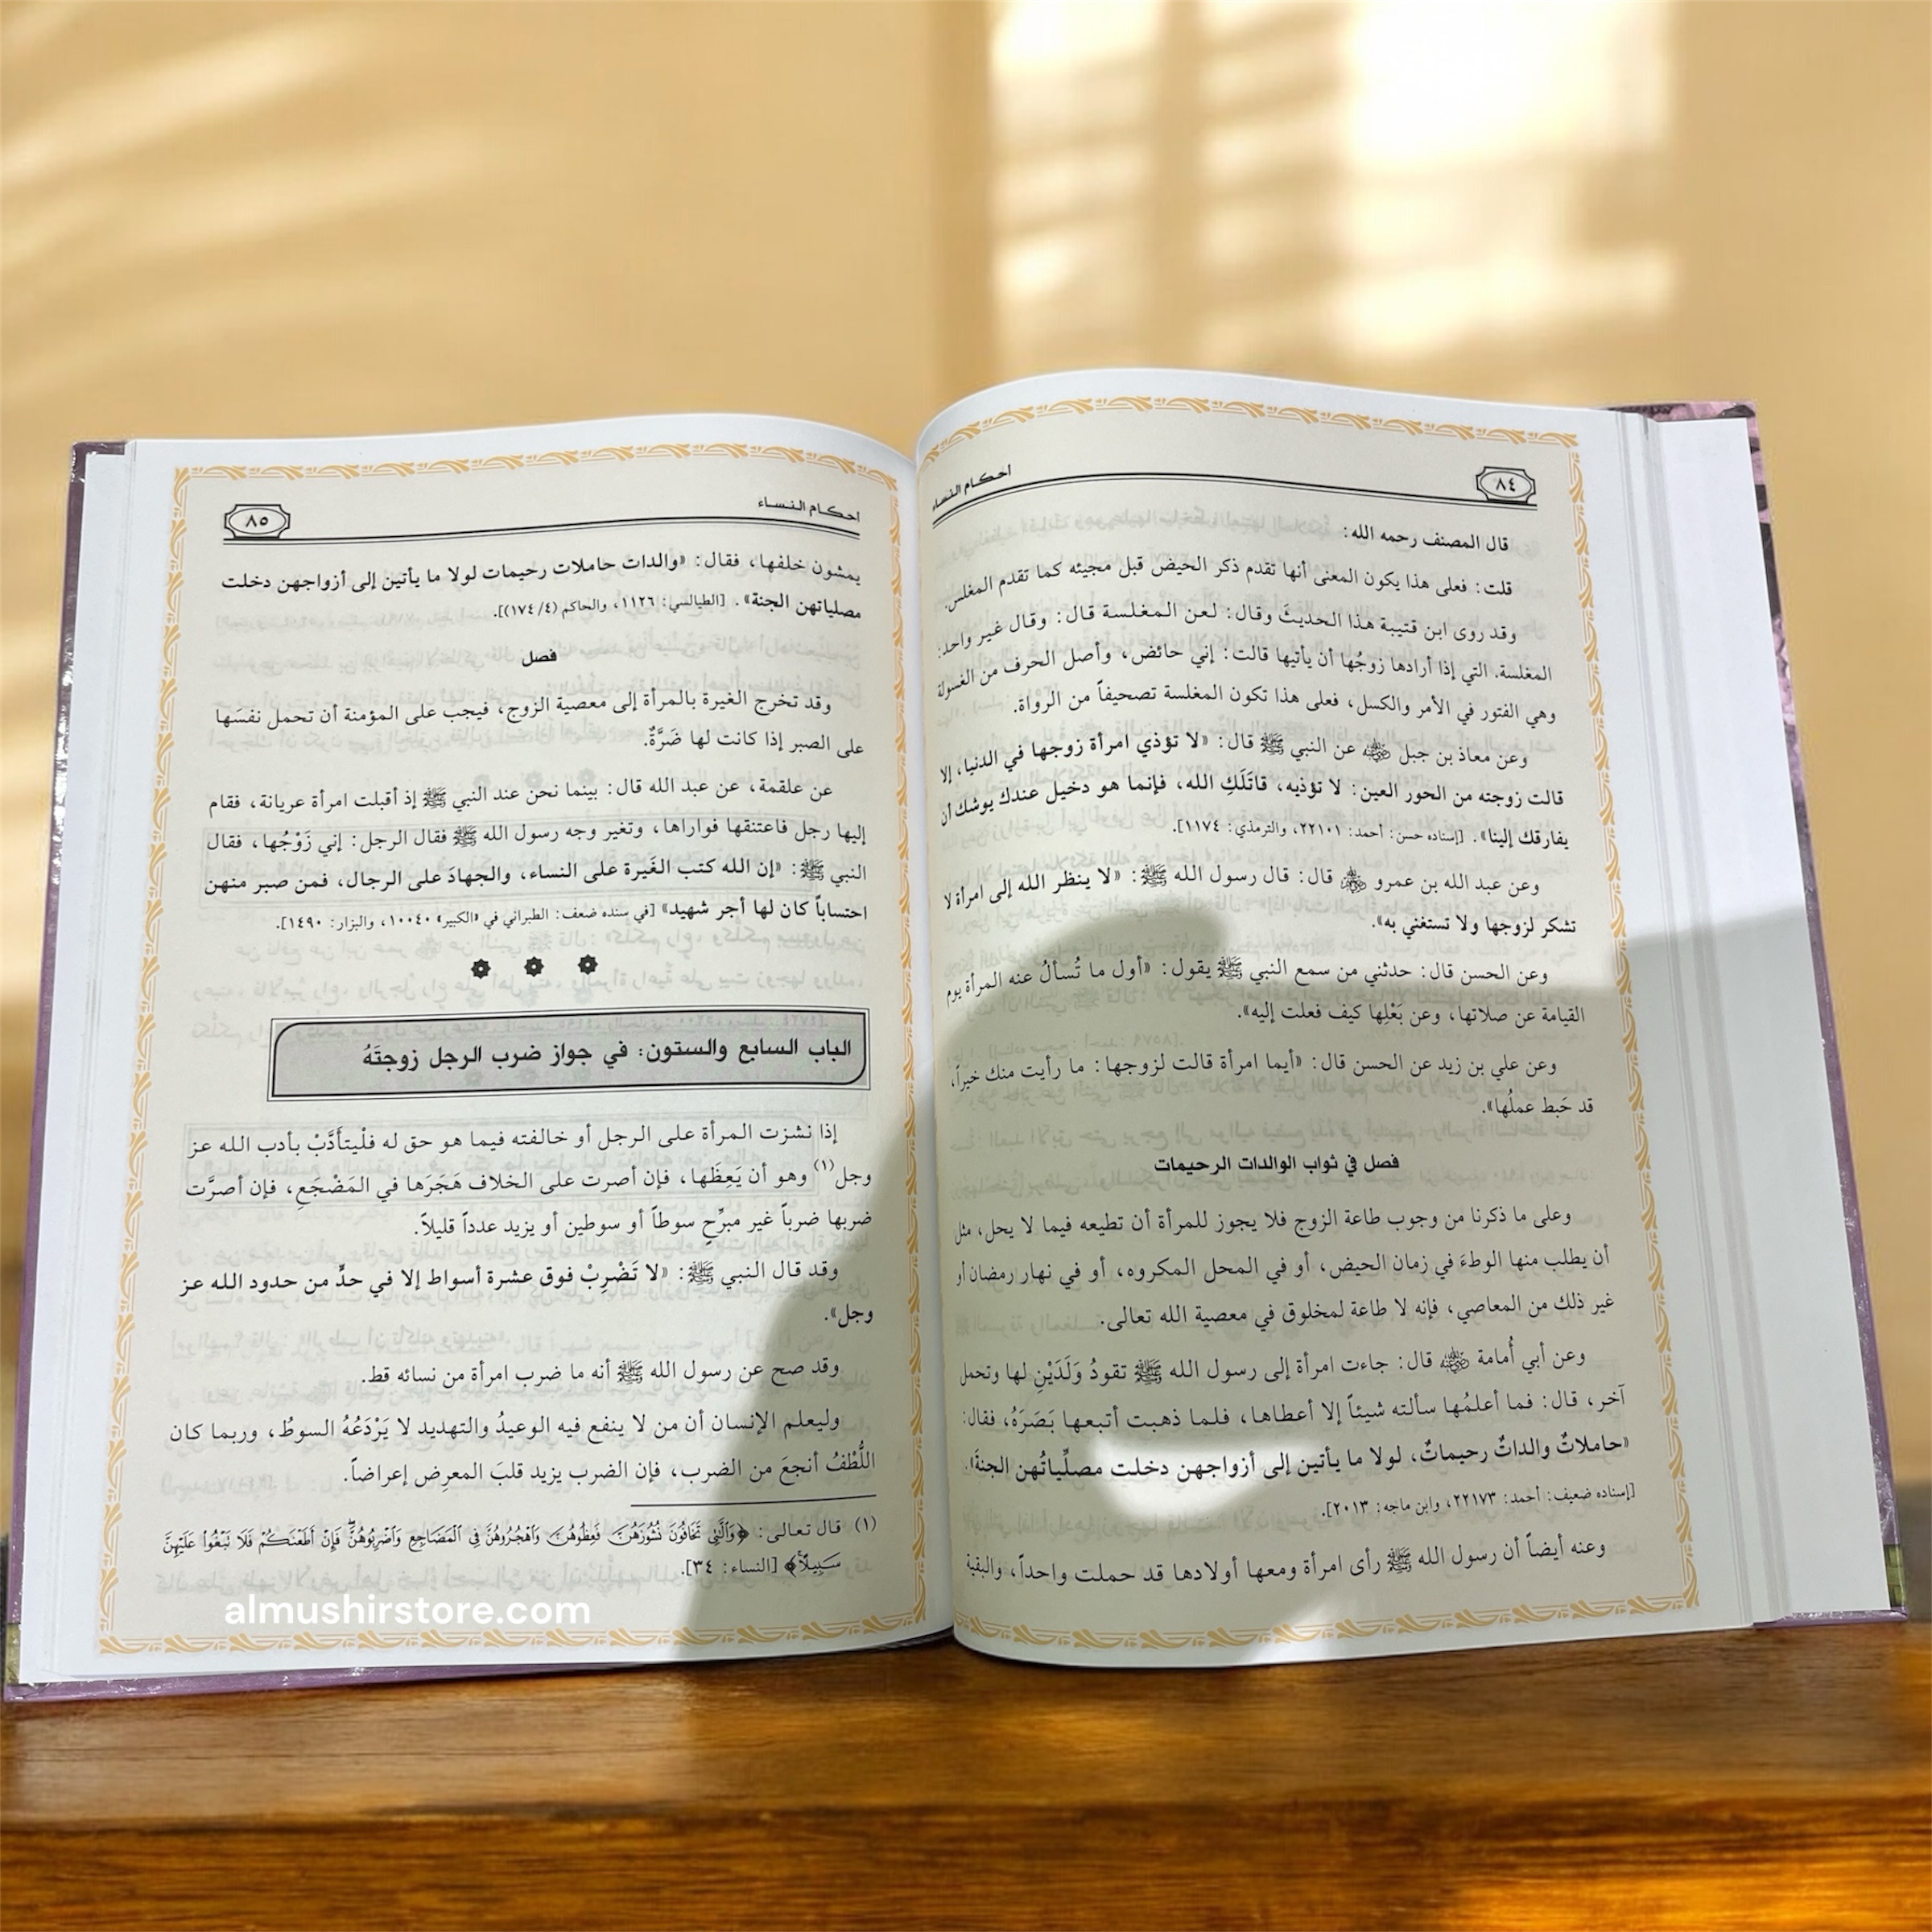 ٨٤
احكام النساء
قال المصنف رحمه الله:
قلت: فعلى هذا يكون المعنى أنها تقدم ذكر الحيض قبل مجيئه كما تقدم المغلس.
وقد روى ابن قتيبة هذا الحديثَ وقال: لعن المغلسة قال: وقال غير واحد:
المغلسة. التي إذا أرادها زوجُها أن يأتيها قالت: إني حائض، وأصل الحرف من الغسولة
وهي الفتور في الأمر والكسل، فعلى هذا تكون المغلسة تصحيفاً من الرواة.
وعن معاذ بن جبل رضي الله عنه عن النبي ﷺ قال: «لا تؤذي امرأة زوجها في الدنيا، إلا
قالت زوجته من الحور العين: لا تؤذيه، قاتَلَكِ الله، فإنما هو دخيل عندك يوشك أن
يفارقك إلينا». [إسناده حسن: أحمد: ٢٢١٠١، والترمذي: ١١٧٤].
وعن عبد الله بن عمرو رضي الله عنه قال: قال رسول الله ﷺ: «لا ينظر الله إلى امرأة لا
تشكر لزوجها ولا تستغني به».
وعن الحسن قال: حدثني من سمع النبي ﷺ يقول: «أول ما تُسألُ عنه المرأة يوم
القيامة عن صلاتها، وعن بَعْلِها كيف فعلت إليه».
وعن علي بن زيد عن الحسن قال: «أيما امرأة قالت لزوجها: ما رأيت منك خيراً،
قد حَبط عملُها».
فصل في ثواب الوالدات الرحيمات
وعلى ما ذكرنا من وجوب طاعة الزوج فلا يجوز للمرأة أن تطيعه فيما لا يحل، مثل
أن يطلب منها الوطءَ في زمان الحيض، أو في المحل المكروه، أو في نهار رمضان أو
غير ذلك من المعاصي، فإنه لا طاعة لمخلوق في معصية الله تعالى.
وعن أبي أُمامة رضي الله عنه قال: جاءت امرأة إلى رسول الله ﷺ تقودُ وَلَدَيْنِ لها وتحمل
آخر، قال: فما أعلمُها سألته شيئاً إلا أعطاها، فلما ذهبت أتبعها بَصَرَهُ، فقال:
«حاملاتٌ والداتٌ رحيماتٌ، لولا ما يأتين إلى أزواجهن دخلت مصلِّياتُهن الجنةَ».
[إسناده ضعيف: أحمد: ٢٢١٧٣، وابن ماجه: ٢٠١٣].
وعنه أيضاً أن رسول الله ﷺ رأى امرأة ومعها أولادها قد حملت واحداً، والبقية
احكام النساء
٨٥
يمشون خلفها، فقال: «والدات حاملات رحيمات لولا ما يأتين إلى أزواجهن دخلت
مصلياتهن الجنة». [الطيالسي: ١١٢٦، والحاكم (٤/ ١٧٤)].
فصل
وقد تخرج الغيرة بالمرأة إلى معصية الزوج، فيجب على المؤمنة أن تحمل نفسَها
على الصبر إذا كانت لها ضَرَّةٌ.
عن علقمة، عن عبد الله قال: بينما نحن عند النبي ﷺ إذ أقبلت امرأة عريانة، فقام
إليها رجل فاعتنقها فواراها، وتغير وجه رسول الله ﷺ فقال الرجل: إني زَوْجُها، فقال
النبي ﷺ: «إن الله كتب الغَيرة على النساء، والجهادَ على الرجال، فمن صبر منهن
احتساباً كان لها أجر شهيد» [في سنده ضعف: الطبراني في «الكبير» ١٠٠٤٠، والبزار: ١٤٩٠].
الباب السابع والستون: في جواز ضرب الرجل زوجتَهُ
إذا نشزت المرأة على الرجل أو خالفته فيما هو حق له فلْيتأَدَّبْ بأدب الله عز
وجل(١) وهو أن يَعِظَها، فإن أصرت على الخلاف هَجَرَها في المَضْجَعِ، فإن أصرَّت
ضربها ضرباً غير مبرِّحٍ سوطاً أو سوطين أو يزيد عدداً قليلاً.
وقد قال النبي ﷺ: «لا تَضْرِبْ فوق عشرة أسواط إلا في حدٍّ من حدود الله عز
وجل».
وقد صح عن رسول الله ﷺ أنه ما ضرب امرأة من نسائه قط.
وليعلم الإنسان أن من لا ينفع فيه الوعيدُ والتهديد لا يَرْدَعُهُ السوطُ، وربما كان
اللُّطْفُ أنجعَ من الضرب، فإن الضرب يزيد قلبَ المعرِض إعراضاً.
(١) قال تعالى: ﴿وَٱلَّٰتِي تَخَافُونَ نُشُوزَهُنَّ فَعِظُوهُنَّ وَٱهْجُرُوهُنَّ فِي ٱلْمَضَاجِعِ وَٱضْرِبُوهُنَّ فَإِنْ أَطَعْنَكُمْ فَلَا تَبْغُوا۟ عَلَيْهِنَّ
سَبِيلًا﴾ [النساء: ٣٤].
almushirstore.com